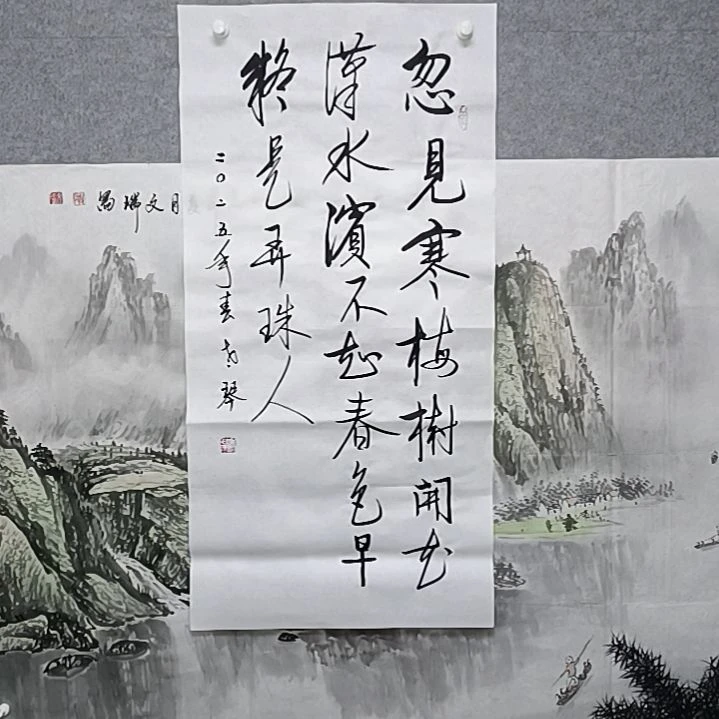 忽見寒梅樹開花
漢水濱不知春色早
疑是弄珠人
二〇二五年春 琴
月文瑞